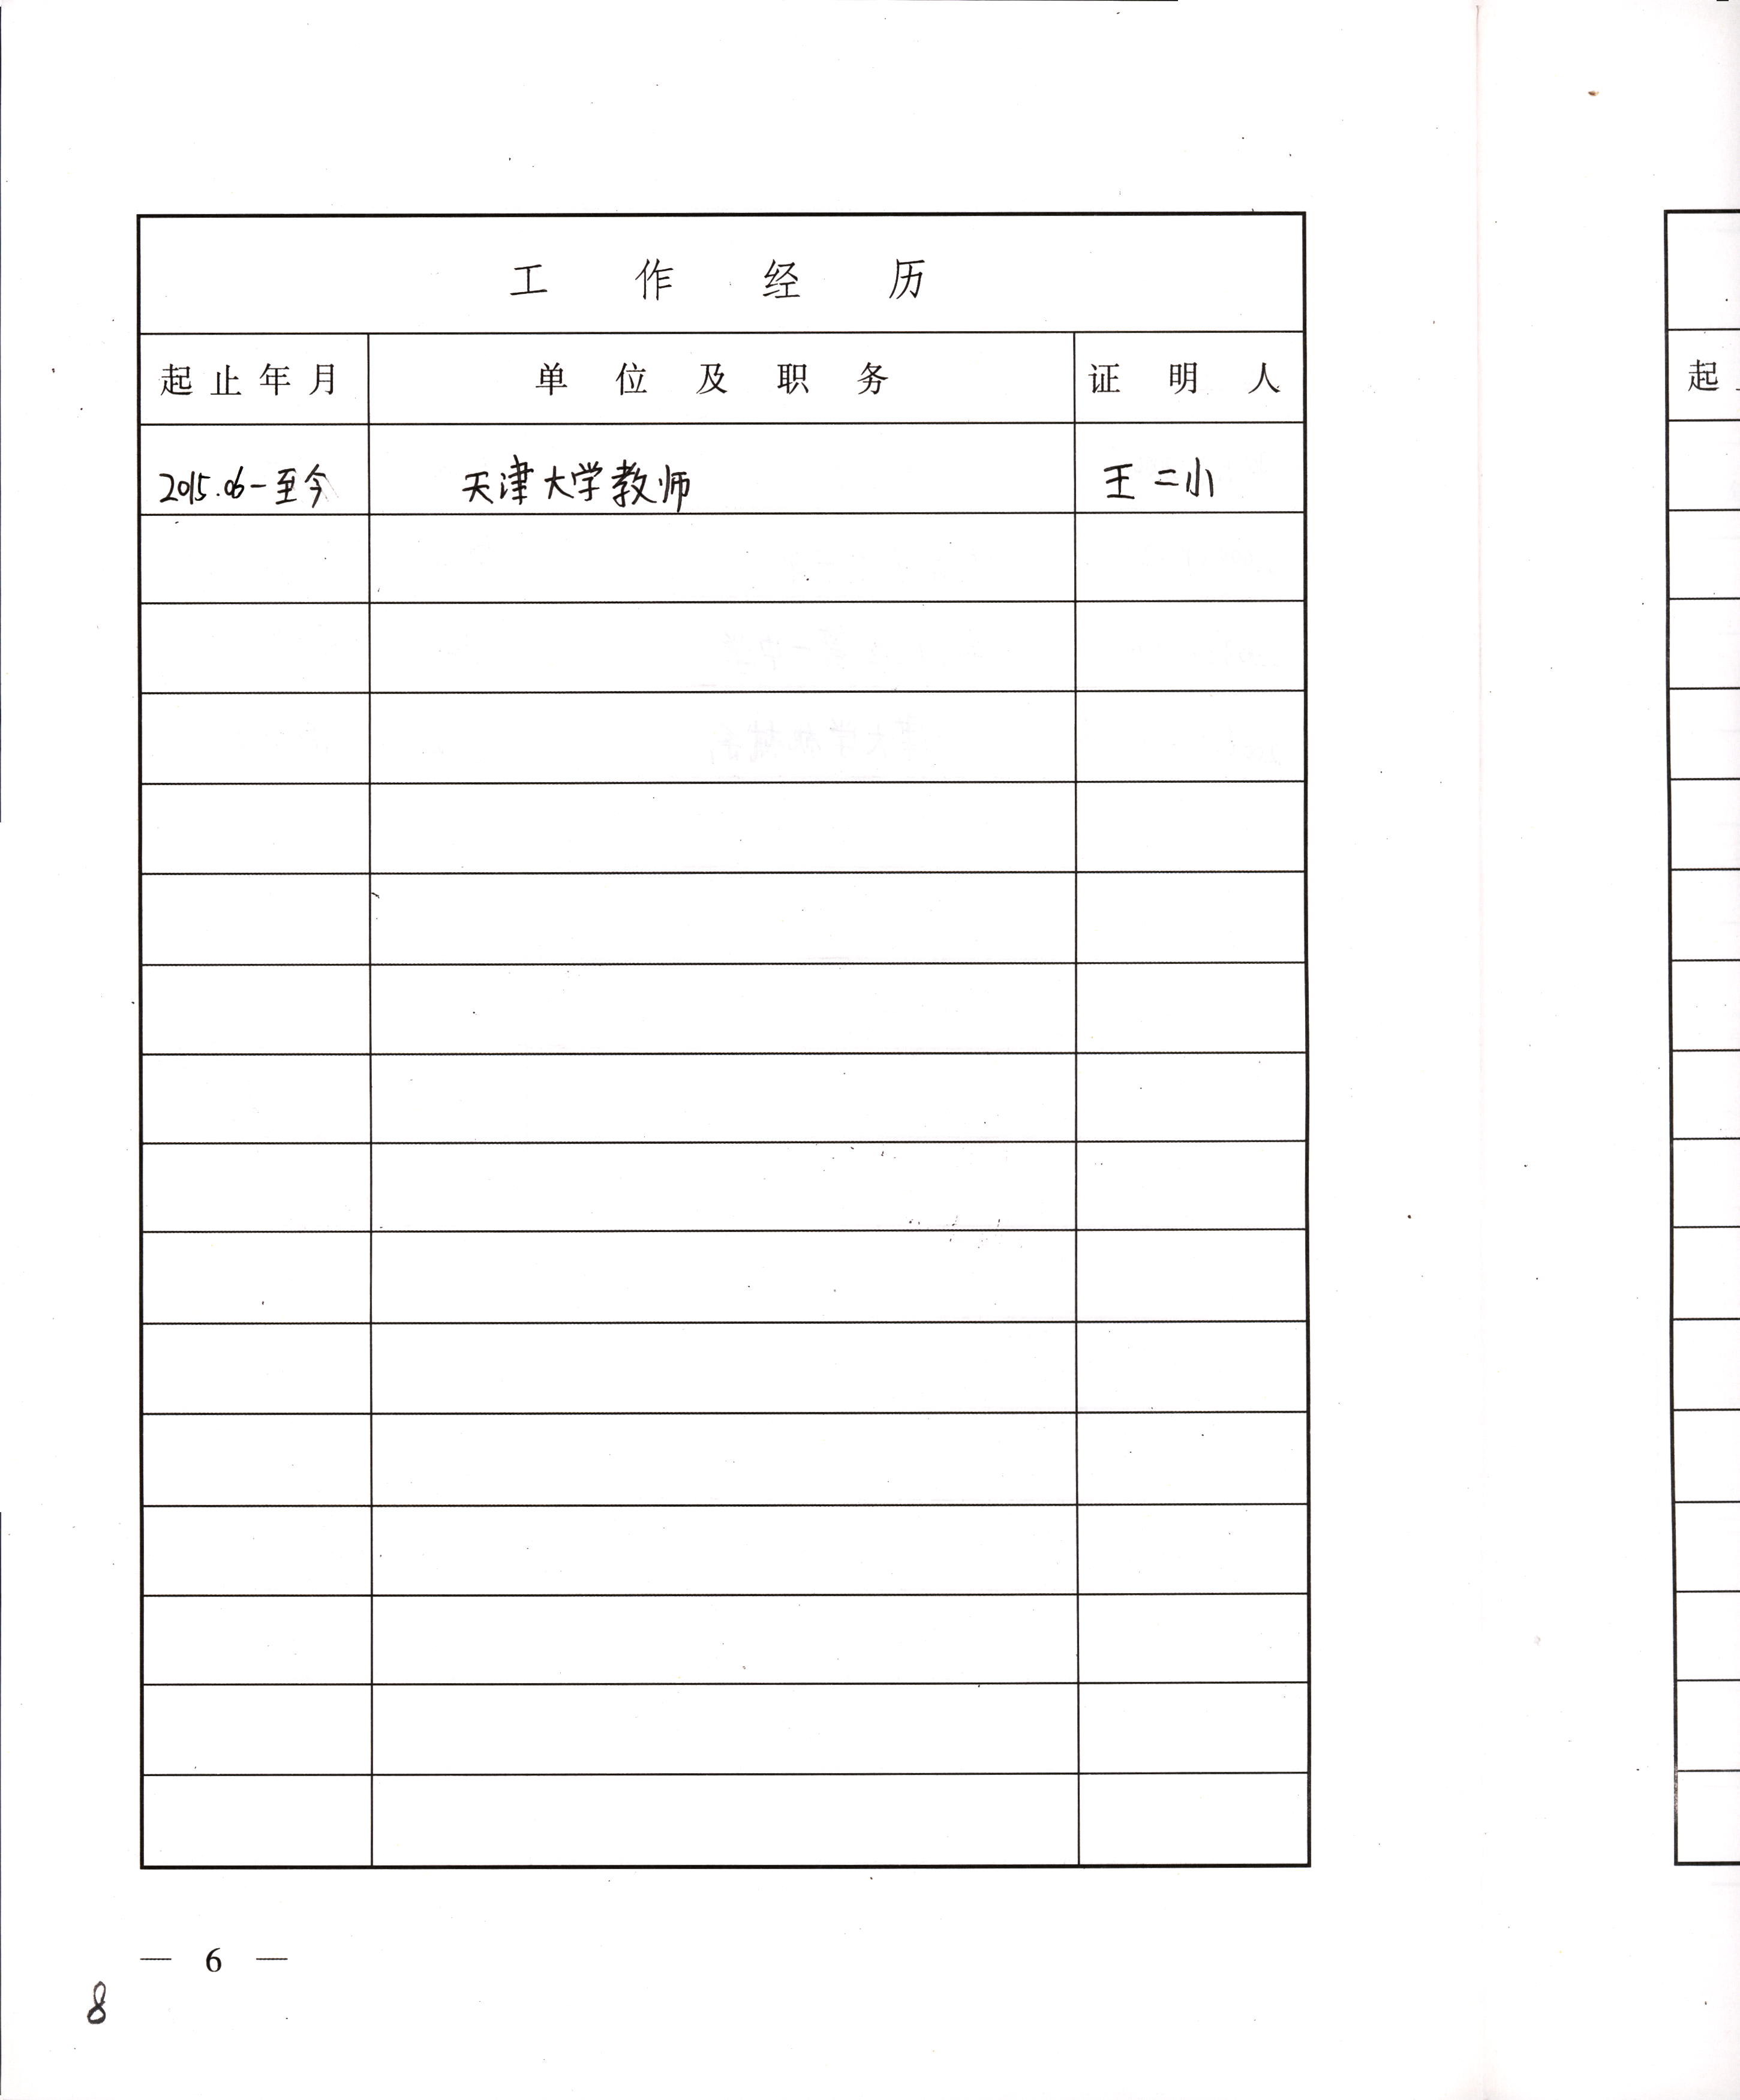 工作经历
起止年月 单位及职务 证明人
2015.06-至今 天津大学教师 王二小
— 6 —
8
起